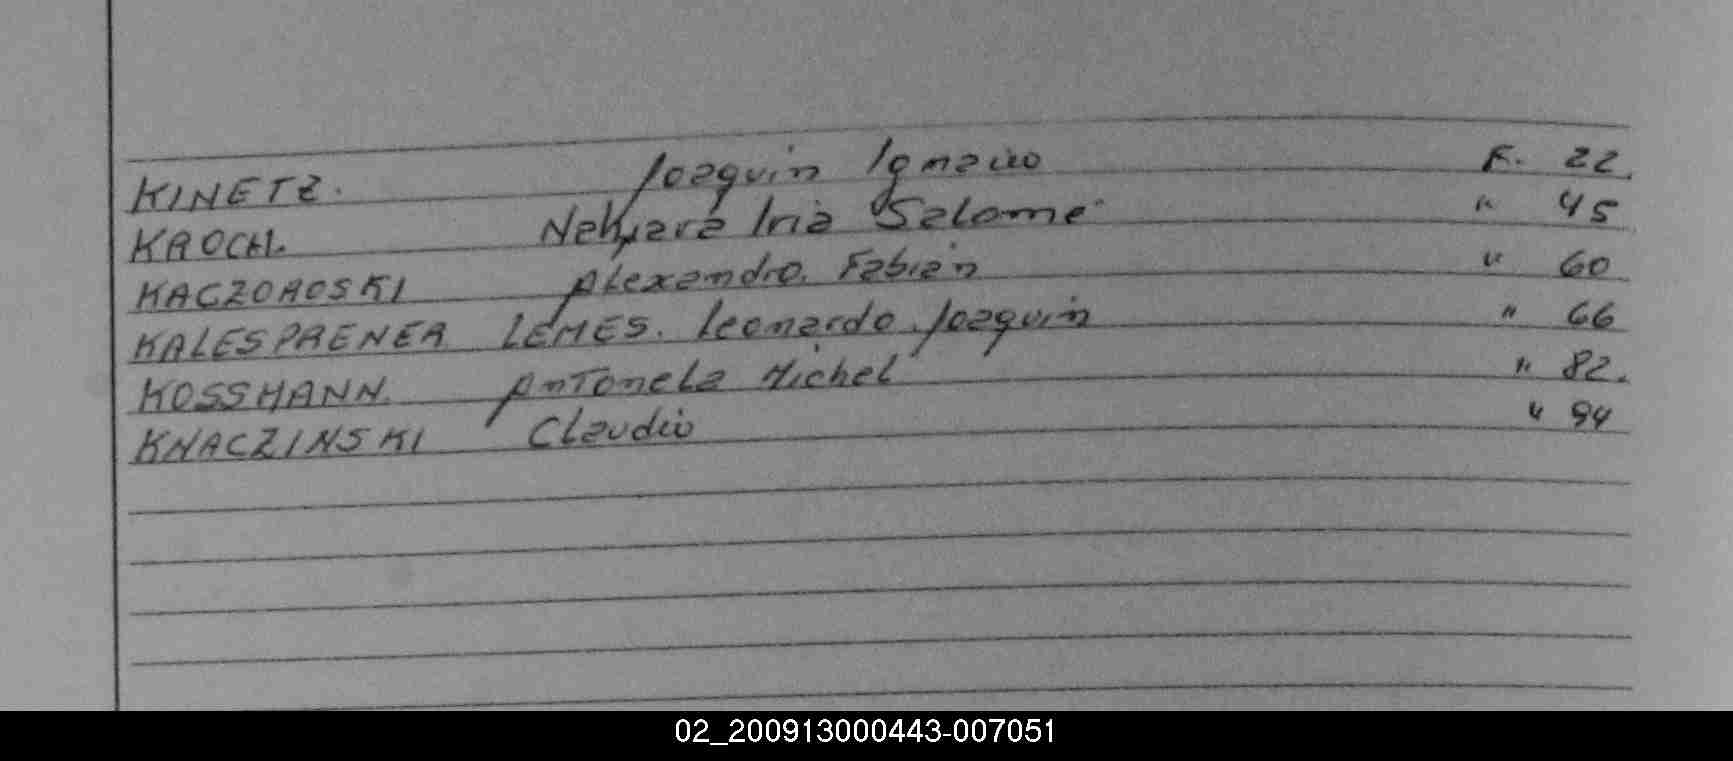 KINETZ. Joaquin Ignacio F. 22.
KROCH. Nahiara Iria Salomé " 45
KACZOROSKI Alexandro. Fabián " 60
KALESPRENER LEMES. Leonardo Joaquin " 66
KOSSMANN. Antonela Michel " 82.
KNACZINSKI Claudio " 94
02_200913000443-007051